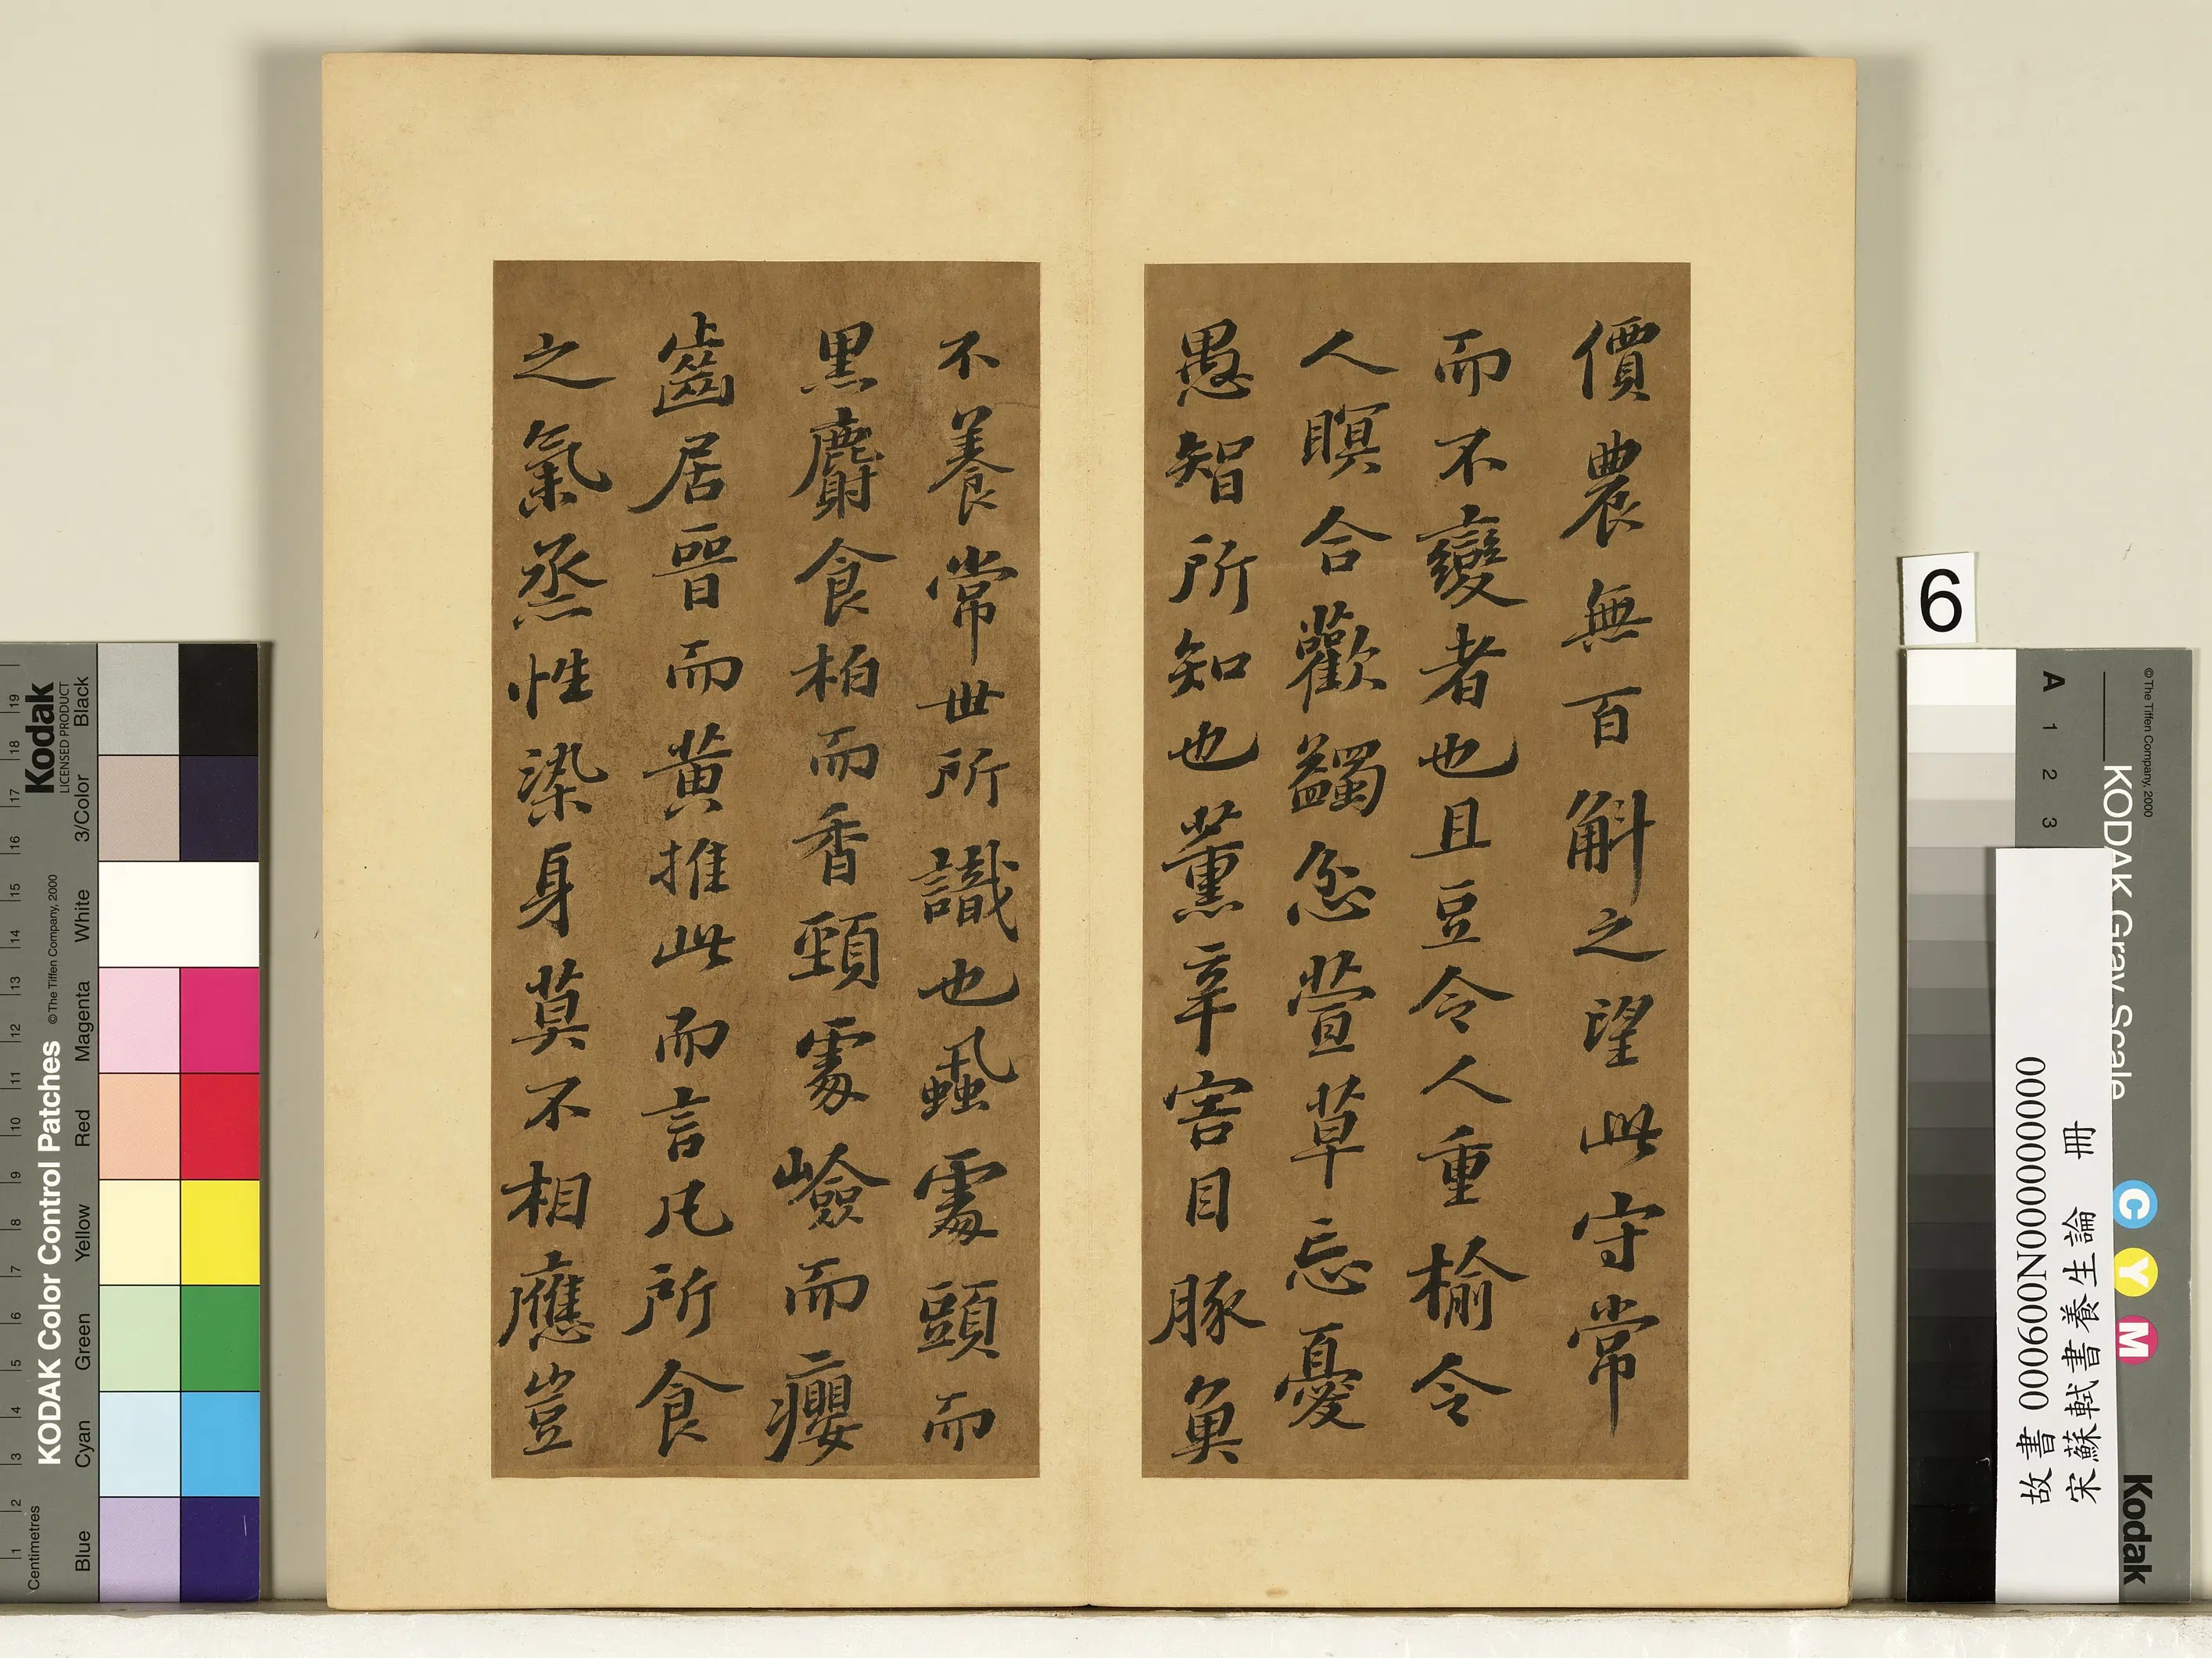 價農無百斛之望此守常
而不變者也且豆令人重榆令
人瞑合歡蠲忿萱草忘憂
愚智所知也薰辛害目豚魚
不養常世所識也蝨處頭而
黑麝食柏而香頸處嶮而癭
齒居晉而黃推此而言凡所食
之氣烝性染身莫不相應豈
6
故書 000600N000000000
宋蘇軾書養生論 冊
KODAK Color Control Patches
©The Tiffen Company, 2000
Kodak
LICENSED PRODUCT
Centimetres
1 2 3 4 5 6 7 8 9 10 11 12 13 14 15 16 17 18 19
Blue Cyan Green Yellow Red Magenta White 3/Color Black
KODAK Gray Scale
©The Tiffen Company, 2000
A 1 2 3
C Y M
Kodak